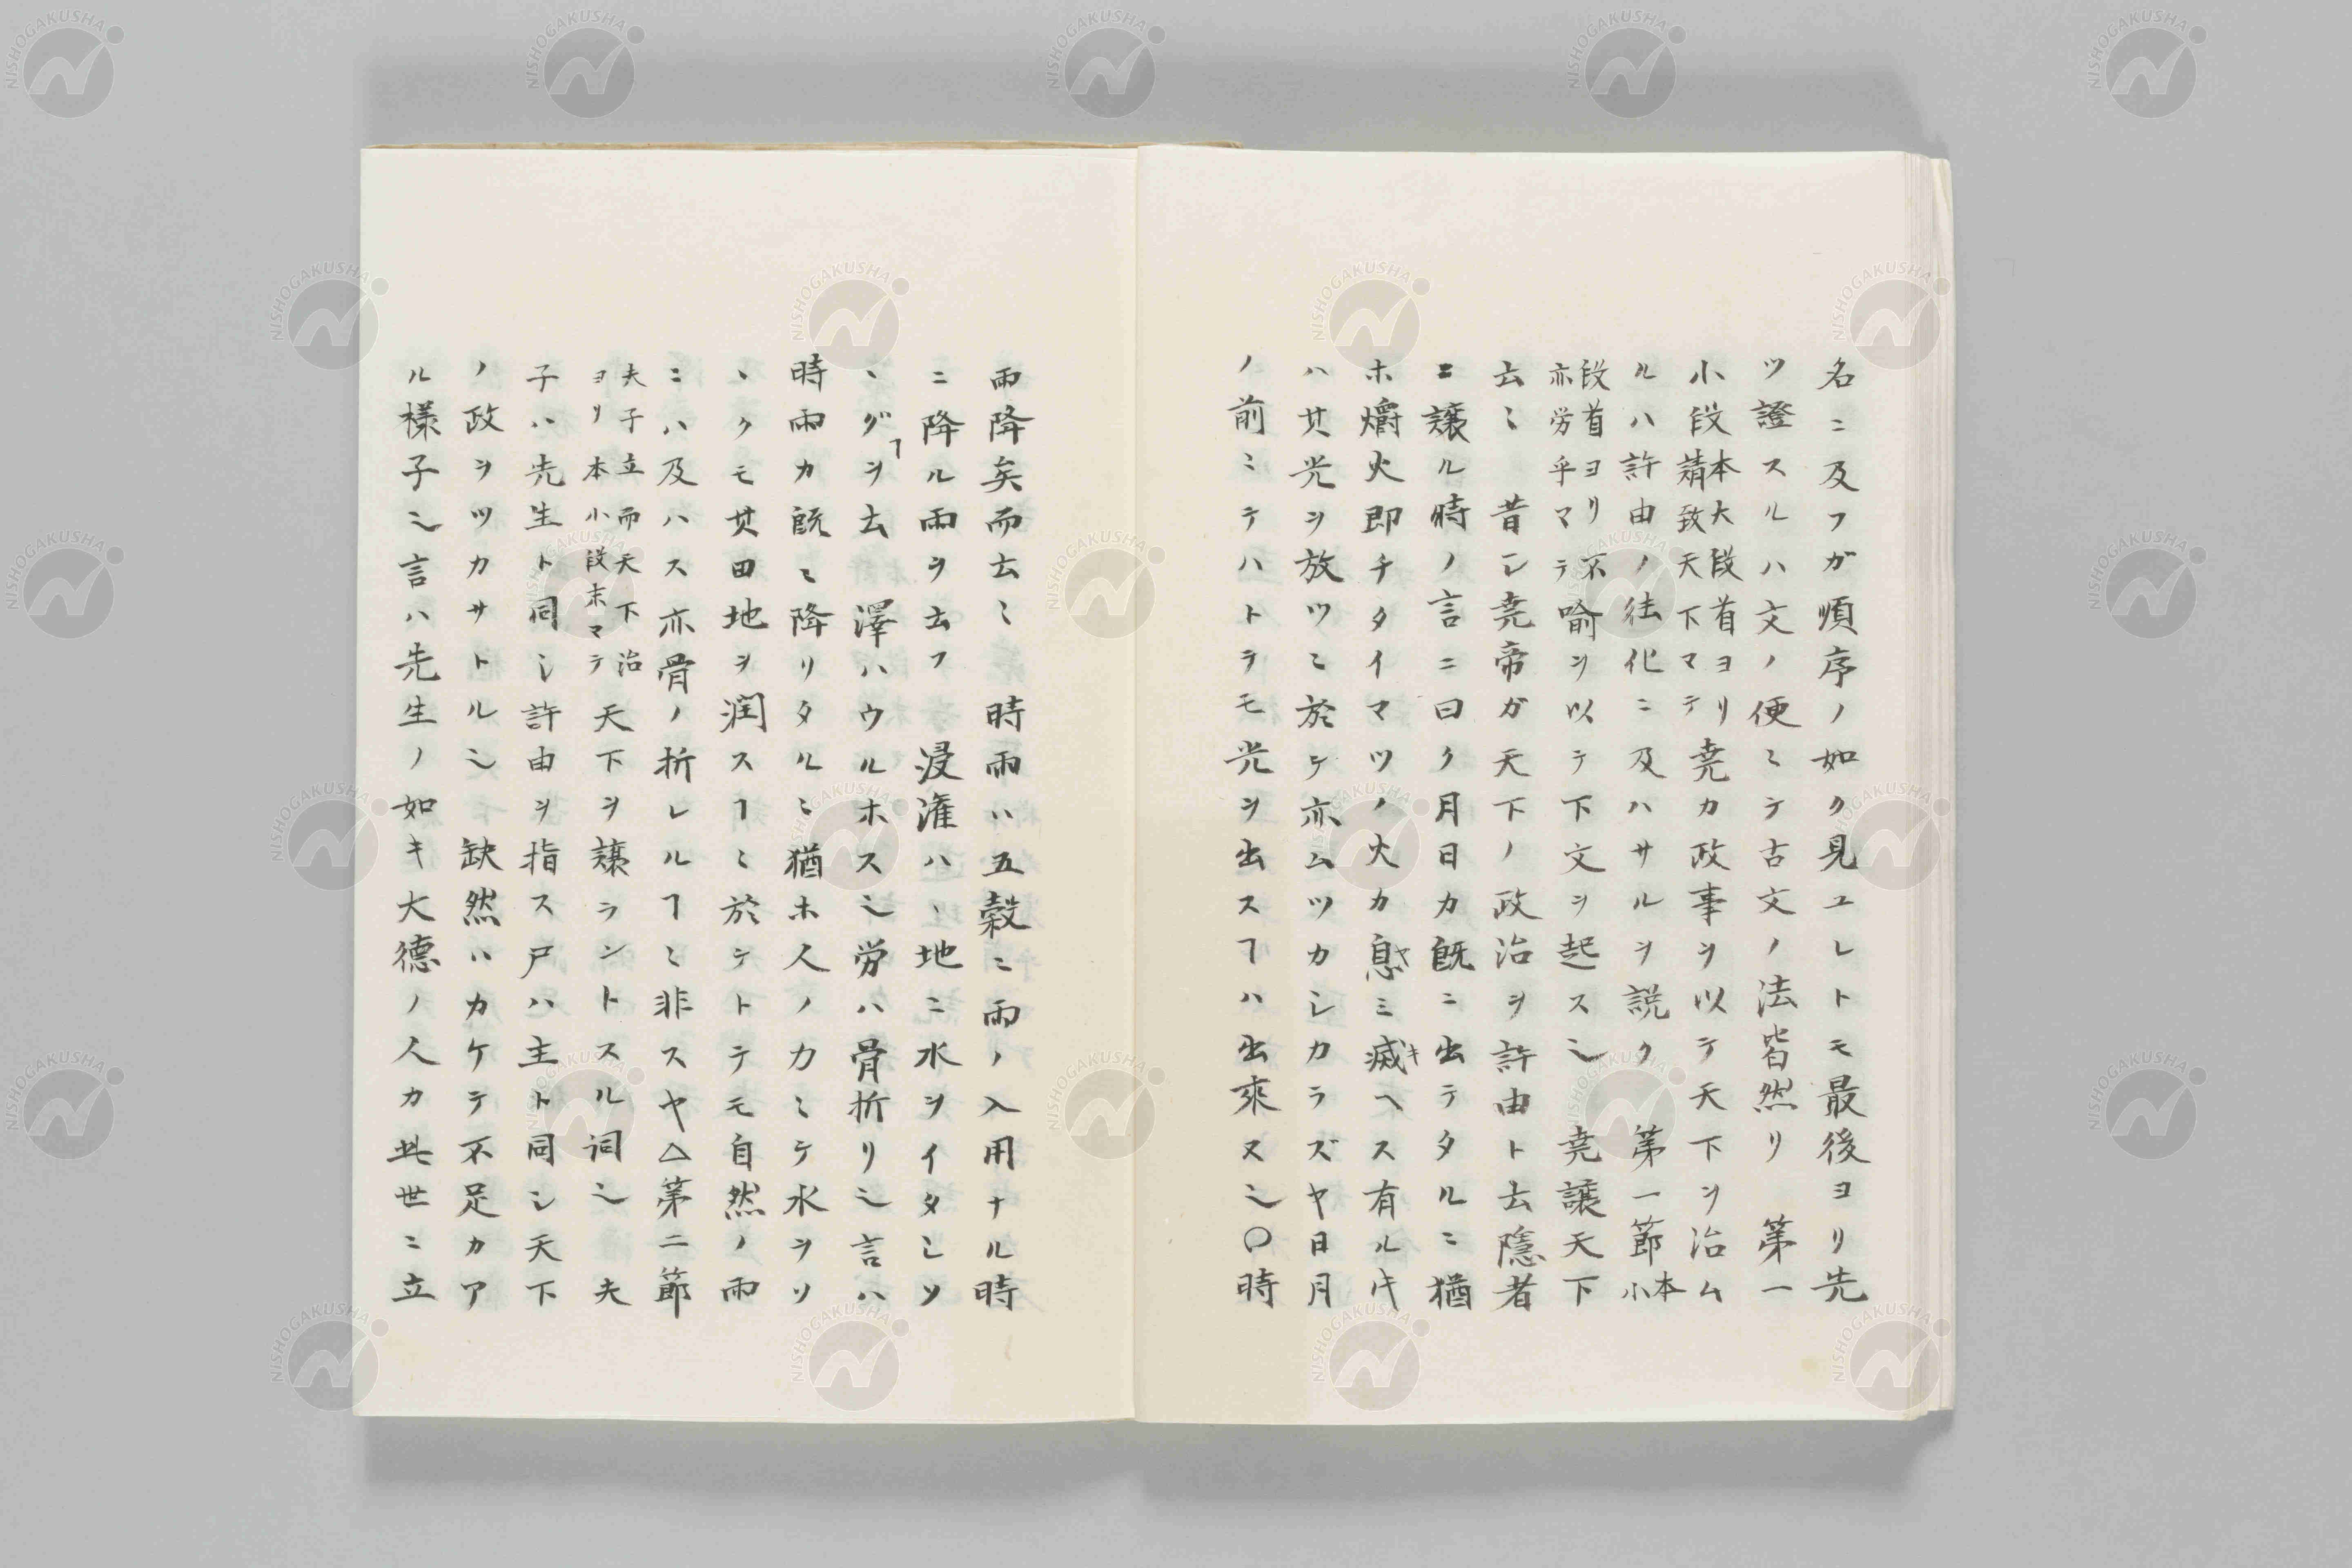 名ニ及フガ順序ノ如ク見ユレトモ最後ヨリ先
ツ證スルハ文ノ便ニテ古文ノ法皆然リ 第一
小段本大段首ヨリ靖致天下マテ堯カ政事ヲ以テ天下ヲ治ム
ルハ許由ノ徃化ニ及ハサルヲ説ク 第一節本小
段首ヨリ不亦労乎マテ喻ヲ以テ下文ヲ起スㄟ 堯讓天下
云〻 昔シ堯帝ガ天下ノ政治ヲ許由ト云隱者
ニ讓ル時ノ言ニ曰ク月日カ既ニ出テタルニ猶
ホ爝火即チタイマツノ火カ息ミ滅ヘス有ル𪜈
ハ其光ヲ放ツニ於テ亦ムツカシカラズヤ日月
ノ前ニテハトテモ光ヲ出スヿハ出來ヌㄟ〇時
雨降矣而云〻 時雨ハ五穀ニ雨ノ入用ナル時
ニ降ル雨ヲ云フ 浸潅ハ、地ニ水ヲイタシツ
、グヿヲ云 澤ハウルホスㄟ労ハ骨折リㄟ言ハ
時雨カ既ニ降リタルニ猶ホ人ノカニテ水ヲソ
、クモ其田地ヲ潤スヿニ於テトテモ自然ノ雨
ニハ及ハス亦骨ノ折レルヿニ非スヤ△第二節
夫子立而天下治ヨリ本小段末マテ天下ヲ讓ラントスル词ㄟ 夫
子ハ先生ト同シ許由ヲ指ス尸ハ主ト同シ天下
ノ政ヲツカサトルㄟ 缺然ハカケテ不足カア
ル様子ㄟ言ハ先生ノ如キ大德ノ人カ此世ニ立